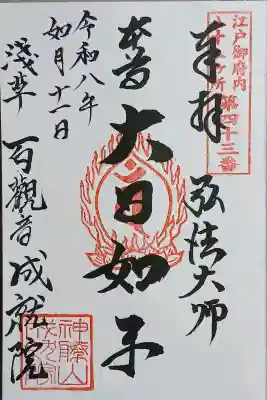 江戸御府内
八十八ヶ所 第四十三番
奉拝
弘法大師
本尊 大日如来
令和八年
如月十一日
淺草 百觀音成就院
神勝山